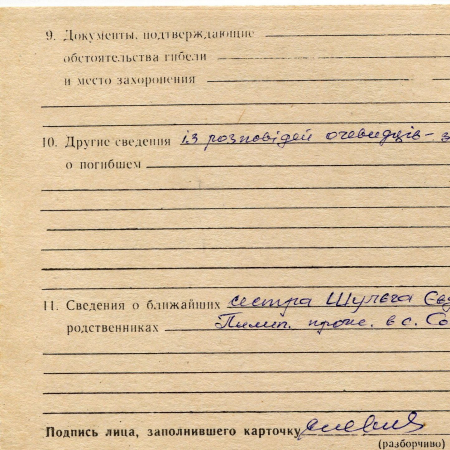 9. Документы, подтверждающие
обстоятельства гибели
и место захоронения
10. Другие сведения із розповідей очевидців - з
о погибшем
11. Сведения о ближайших сестра Шульга Єв
родственниках Пилип. прож. в с. Со
Подпись лица, заполнившего карточку
(разборчиво)